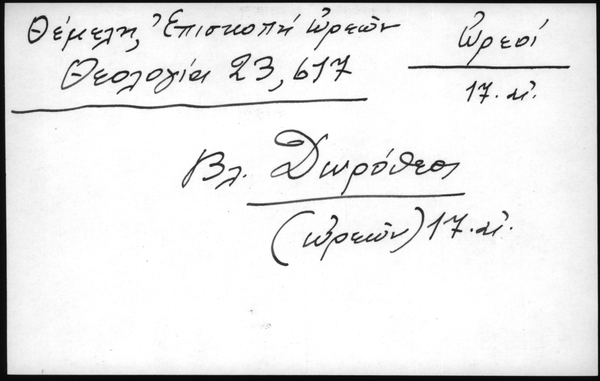 Θέμελη, Ἐπισκοπή Ὠρεῶν
Θεολογία 23, 617
Ὠρεοί
17. αἰ.
Βλ. Δωρόθεος
(Ὠρεῶν) 17. αἰ.